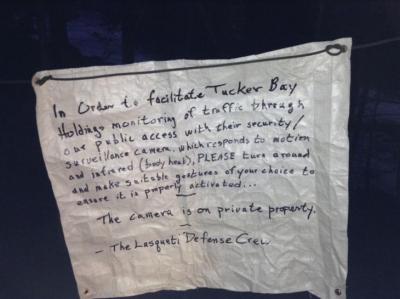 In Order to facilitate Tucker Bay
Holdings monitoring of traffic through
our public access with their security/
surveillance camera, which responds to motion
and infrared (body heat), PLEASE turn around
and make suitable gestures of your choice to
ensure it is properly activated...
The camera is on private property.
- The Lasqueti Defense Crew